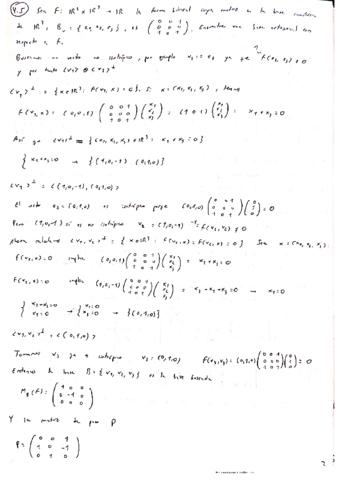 4.5) Sea F: ℝ³ × ℝ³ → ℝ la forma bilineal cuya matriz en la base canónica
de ℝ³, B = { e1, e2, e3 }, es ( 0 0 1 / 0 0 0 / 1 0 1 ). Encontrar una base ortogonal con
respecto a F.
Buscamos un vector no isótropo, por ejemplo v1 = e3 ya que F(v1, v1) ≠ 0
y por tanto <v1> ⊕ <v1>⊥
<v1>⊥ = { x ∈ ℝ³: F(v1, x) = 0 }. Si x = (x1, x2, x3),
F(v1, x) = (0,0,1) ( 0 0 1 / 0 0 0 / 1 0 1 ) ( x1 / x2 / x3 ) = (1 0 1) ( x1 / x2 / x3 ) = x1 + x3 = 0
Así que <v1>⊥ = { (x1, x2, x3) ∈ ℝ³: x1 + x3 = 0 }
{ x1 + x3 = 0 → { (1,0,-1) (0,1,0) }
<v1>⊥ = < (1,0,-1), (0,1,0) >
El vector e2 = (0,1,0) es isótropo porque (0,1,0) ( 0 0 1 / 0 0 0 / 1 0 1 ) ( 0 / 1 / 0 ) = 0
Pero (1,0,-1) si es no isótropo v2 = (1,0,-1) F(v2, v2) ≠ 0
Ahora <v1, v2>⊥ = { x ∈ ℝ³: F(v1, x) = F(v2, x) = 0 } Sea x = (x1, x2, x3)
F(v1, x) = 0 implica (0,0,1) ( 0 0 1 / 0 0 0 / 1 0 1 ) ( x1 / x2 / x3 ) = x1 + x3 = 0
F(v2, x) = 0 implica (1,0,-1) ( 0 0 1 / 0 0 0 / 1 0 1 ) ( x1 / x2 / x3 ) = x3 - x1 - x3 = 0 → x1 = 0
{ x1 + x3 = 0 / x1 = 0 → { x1 = 0 / x3 = 0 → { (0,1,0) }
<v1, v2>⊥ = < (0,1,0) >
Tomamos v3 isótropo v3 = (0,1,0) F(v3, v3) = (0,1,0) ( 0 0 1 / 0 0 0 / 1 0 1 ) ( 0 / 1 / 0 ) = 0
Entonces la base B = { v1, v2, v3 } es la base buscada
M_B (F) = ( 1 0 0 / 0 -1 0 / 0 0 0 )
Y la matriz de paso P
P = ( 0 0 1 / 1 0 -1 / 0 1 0 )
2